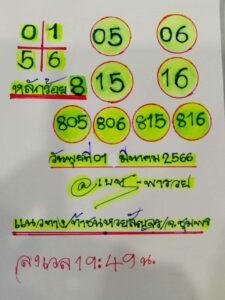 0 1 05 06
5 6
หลักร้อย 8 15 16
805 806 815 816
วันพุธที่ 01 มีนาคม 2566
@เพชร-พารวย
แนวทาง/ถ้าชนหวยสัญจร/จ.ชุมพร
ลงเวลา 19:49 น.